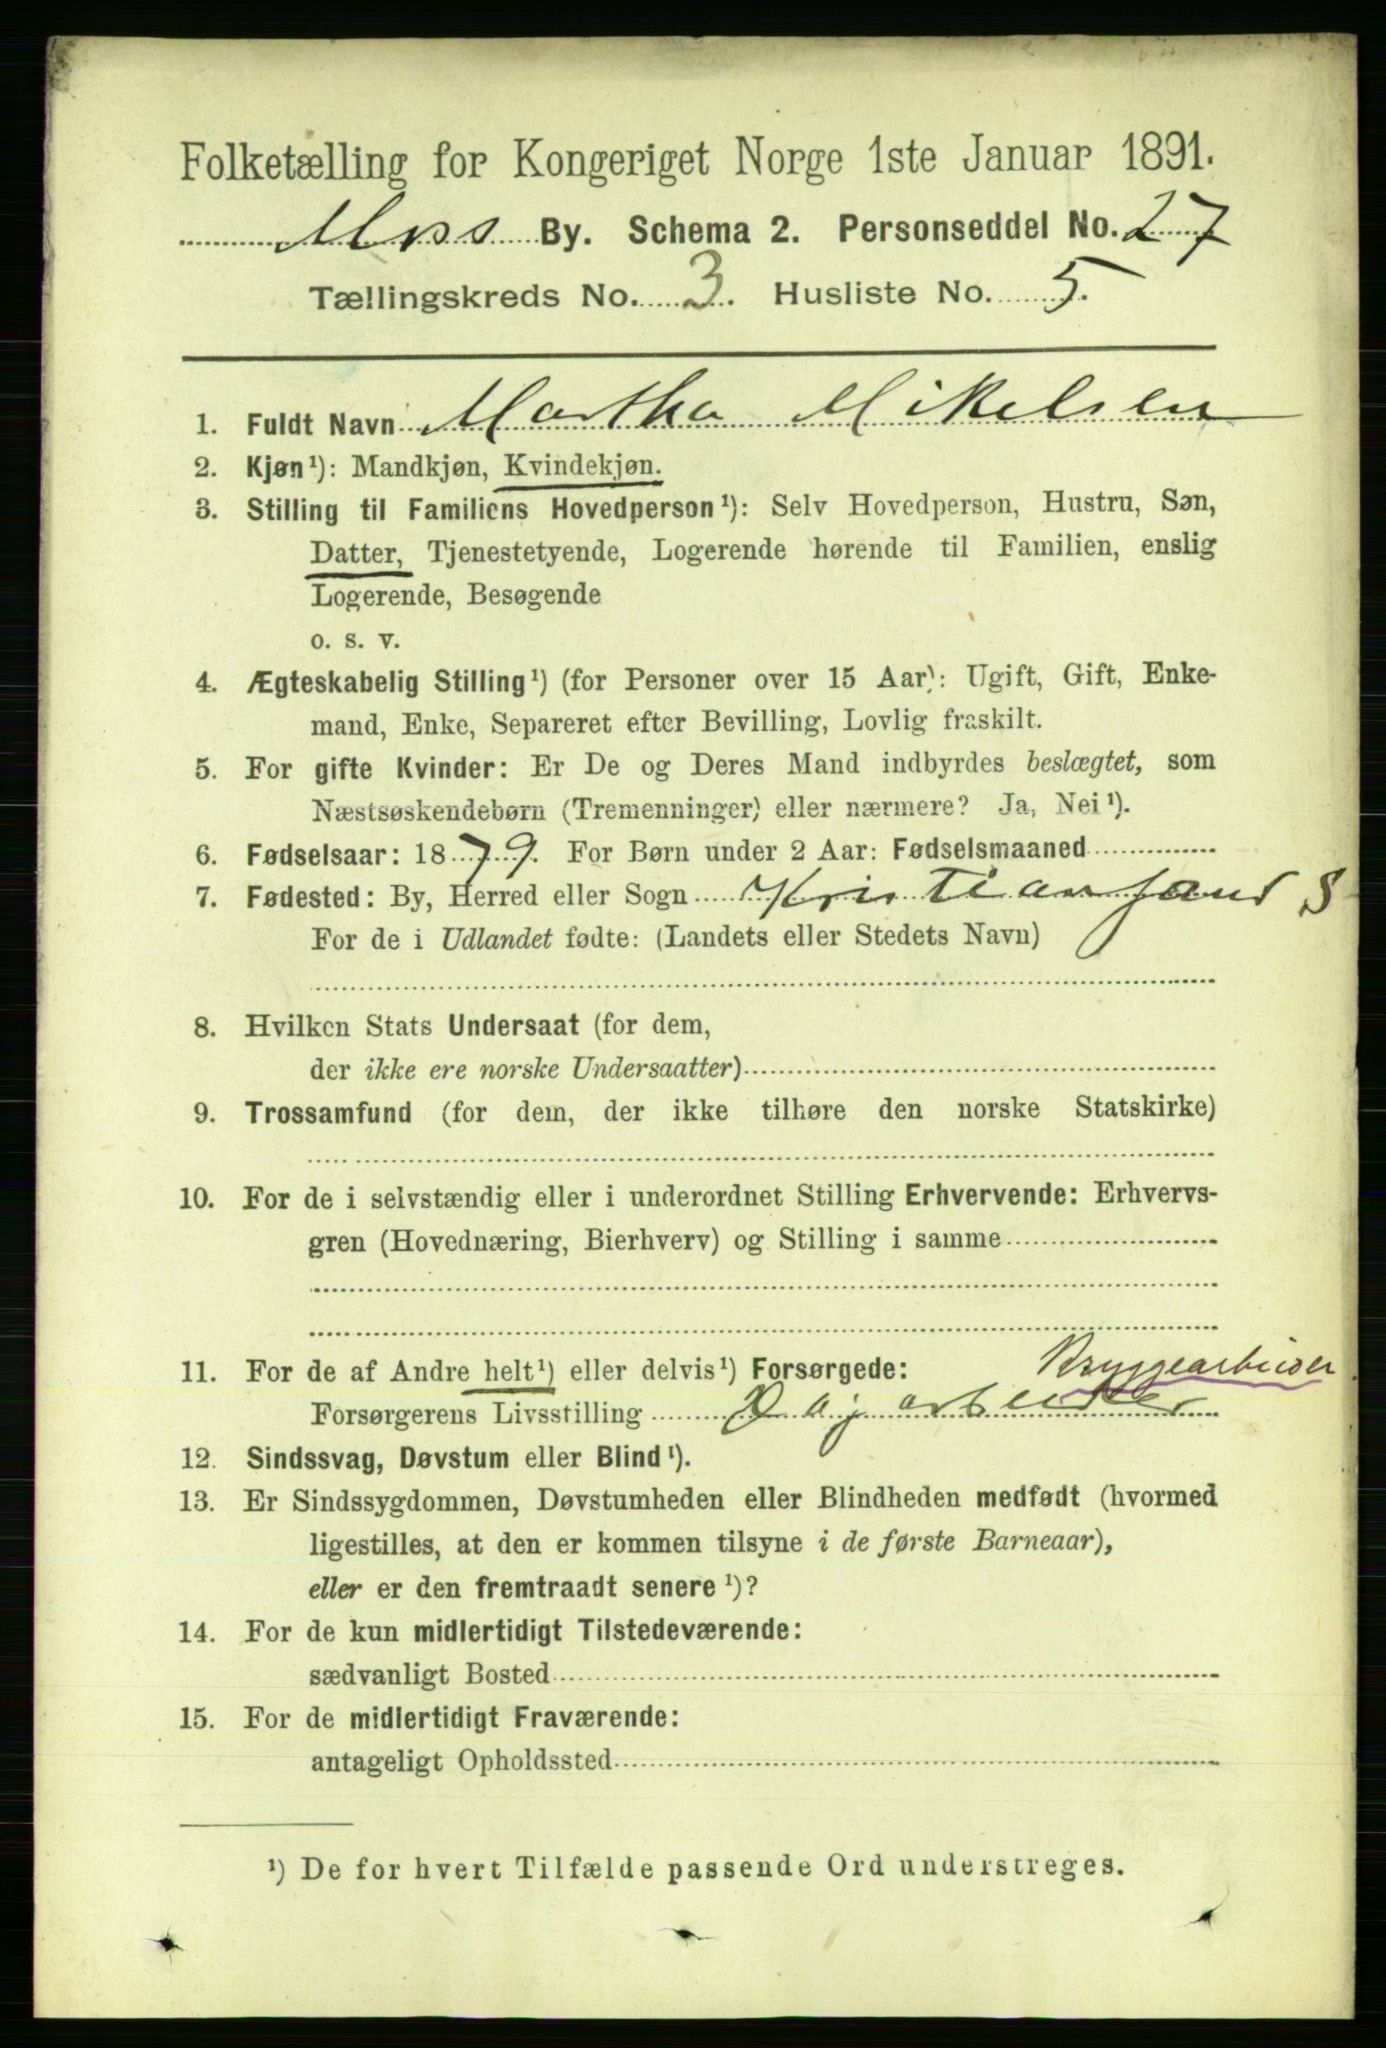 Folketælling for Kongeriget Norge 1ste Januar 1891.
Moss By. Schema 2. Personseddel No. 27
Tællingskreds No. 3. Husliste No. 5.
1. Fuldt Navn Martha Mikelsen
2. Kjøn¹): Mandkjøn, Kvindekjøn.
3. Stilling til Familiens Hovedperson¹): Selv Hovedperson, Hustru, Søn,
Datter, Tjenestetyende, Logerende hørende til Familien, enslig
Logerende, Besøgende
o. s. v.
4. Ægteskabelig Stilling¹) (for Personer over 15 Aar): Ugift, Gift, Enke-
mand, Enke, Separeret efter Bevilling, Lovlig fraskilt.
5. For gifte Kvinder: Er De og Deres Mand indbyrdes beslægtet, som
Næstsøskendebørn (Tremenninger) eller nærmere? Ja, Nei¹).
6. Fødselsaar: 1879. For Børn under 2 Aar: Fødselsmaaned
7. Fødested: By, Herred eller Sogn Kristiansand S
For de i Udlandet fødte: (Landets eller Stedets Navn)
8. Hvilken Stats Undersaat (for dem,
der ikke ere norske Undersaatter)
9. Trossamfund (for dem, der ikke tilhøre den norske Statskirke)
10. For de i selvstændig eller i underordnet Stilling Erhvervende: Erhvervs-
gren (Hovednæring, Bierhverv) og Stilling i samme
11. For de af Andre helt¹) eller delvis¹) Forsørgede: Bryggearbeider
Forsørgerens Livsstilling Dagarbeider
12. Sindssvag, Døvstum eller Blind¹).
13. Er Sindssygdommen, Døvstumheden eller Blindheden medfødt (hvormed
ligestilles, at den er kommen tilsyne i de første Barneaar),
eller er den fremtraadt senere¹)?
14. For de kun midlertidigt Tilstedeværende:
sædvanligt Bosted
15. For de midlertidigt Fraværende:
antageligt Opholdssted
¹) De for hvert Tilfælde passende Ord understreges.